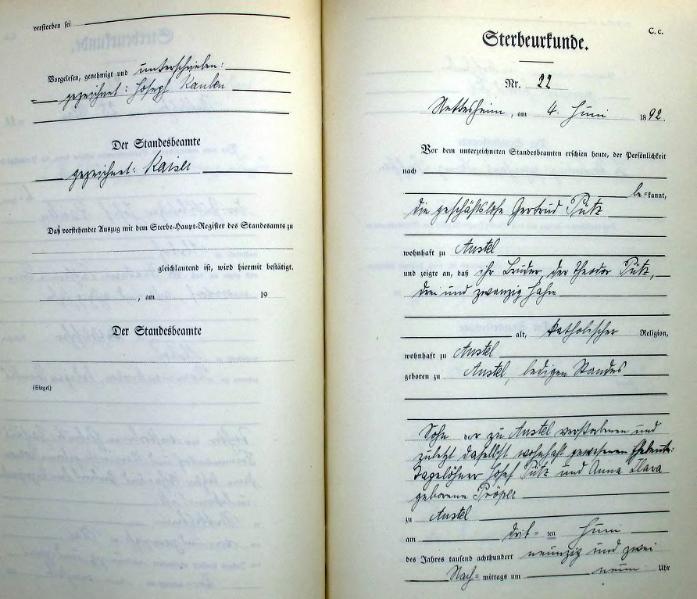 verstorben sei
Vorgelesen, genehmigt und unterschrieben:
gezeichnet: Joseph Kaulen
Der Standesbeamte
gezeichnet: Kaiser
Daß vorstehender Auszug mit dem Sterbe-Haupt-Register des Standesamts zu
gleichlautend ist, wird hiermit bestätigt.
, am 19
Der Standesbeamte
(Siegel)
C. c.
Sterbeurkunde.
Nr. 22
Nettesheim, am 4. Juni 1892.
Vor dem unterzeichneten Standesbeamten erschien heute, der Persönlichkeit
nach
be=kannt,
die geschäftslose Gertrud Pütz
wohnhaft zu Anstel
und zeigte an, daß ihr Bruder, der Theodor Pütz,
drei und zwanzig Jahre
alt, katholischer Religion,
wohnhaft zu Anstel
geboren zu Anstel, ledigen Standes
Sohn der zu Anstel verstorbenen und
zuletzt daselbst wohnhaft gewesenen Eheleute:
Tagelöhner Josef Pütz und Anna Clara
geborene Pröpper
zu Anstel
am drit=ten Juni
des Jahres tausend achthundert neunzig und zwei
Nach=mittags um neun Uhr